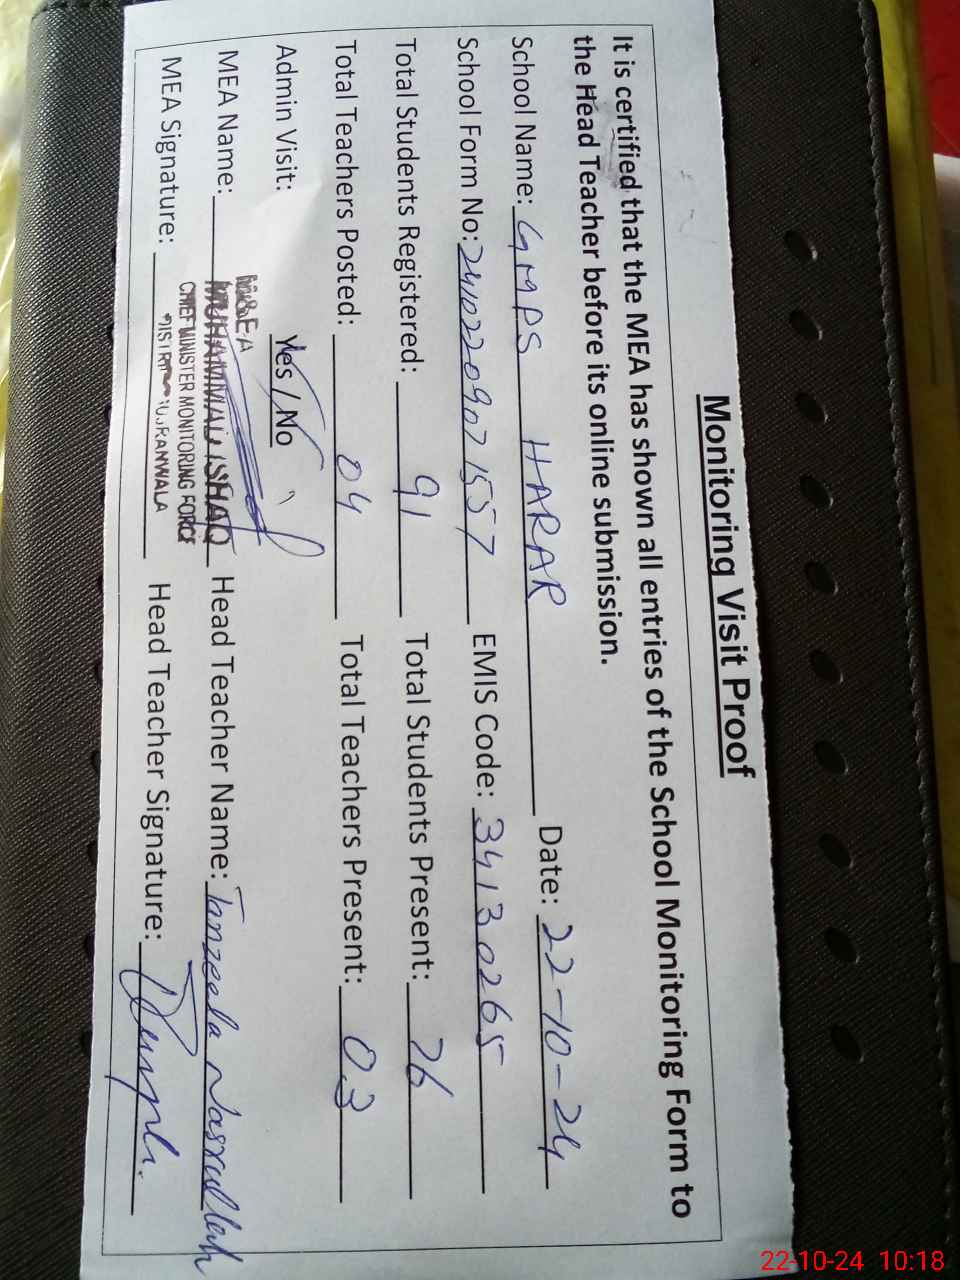 Monitoring Visit Proof
It is certified that the MEA has shown all entries of the School Monitoring Form to
the Head Teacher before its online submission.
School Name: GMPS HARAR Date: 22-10-24
School Form No: 2410220907157 EMIS Code: 34130265
Total Students Registered: 91 Total Students Present: 76
Total Teachers Posted: 04 Total Teachers Present: 03
Admin Visit: Yes / No
MEA Name: MUHAMMAD ISHAQ Head Teacher Name: Tanzeela Nasrullah
CHIEF MINISTER MONITORING FORCE
MEA Signature: Head Teacher Signature:
22-10-24 10:18